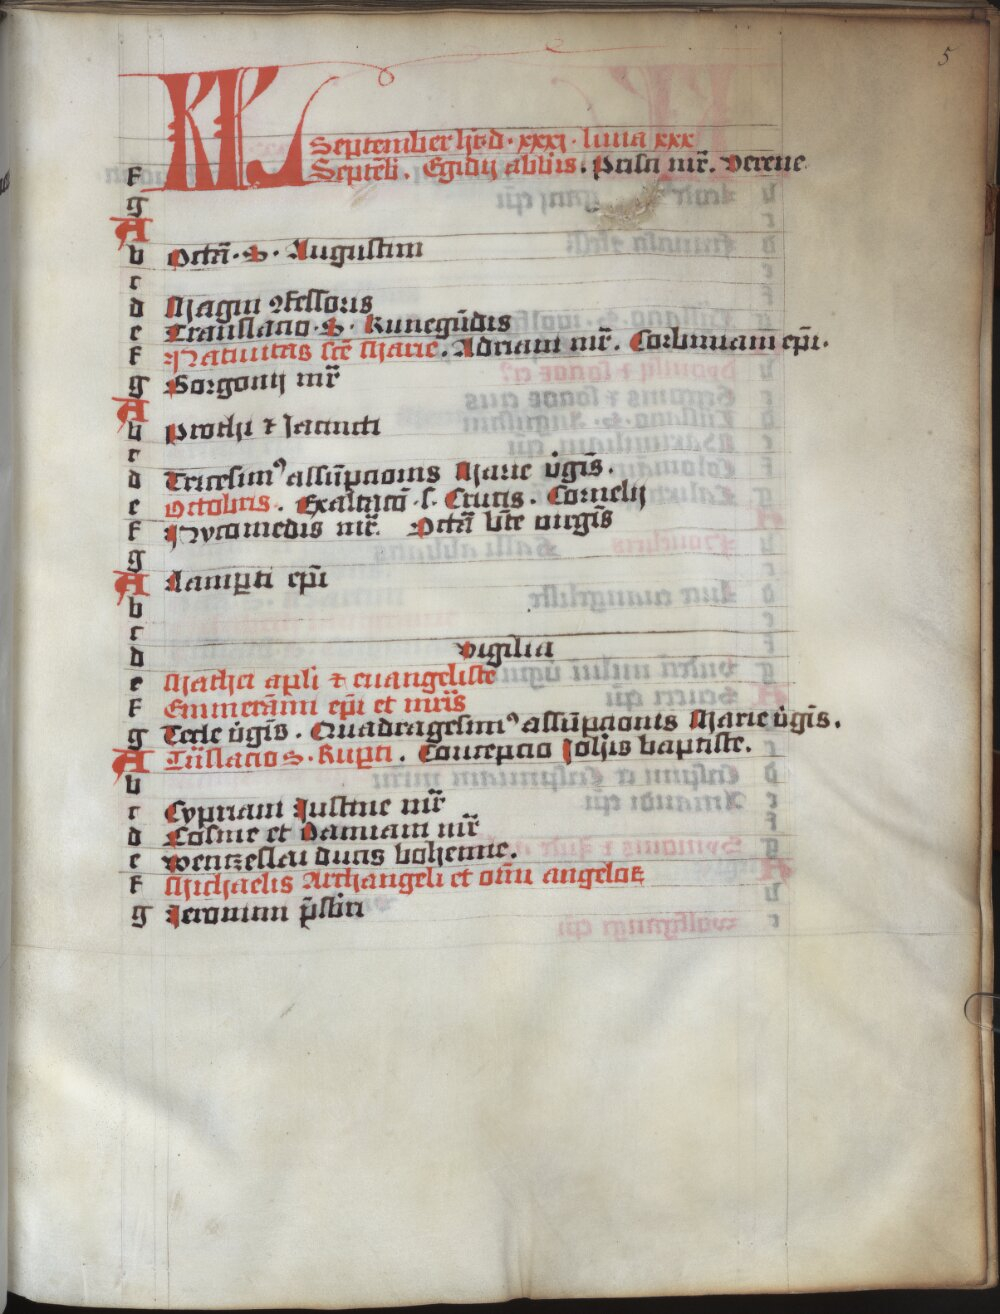 5
KL September hꝫ d· xxxi · luna xxx
f Septēb̄ . Egidij abb̄is . Prisci mr̄. Verene
g
A
b Octā · S · Augustini
c
d Magni ꝯfessoris
e Translacio · S · Kunegūdis
f Natiuitas scē Marie . Adriani mr̄ . Corbiniani ep̄i .
g Gorgonij mr̄
A
b Prothi ⁊ Jacincti
c
d Tricesimꝰ assūpcionis Marie v̇gīs .
e Octobris . Exaltacō · s · Crucis . Cornelij
f Nycomedis mr̄. Octā bt̄e virgīs
g
A Lamp̱ti ep̄i
b
c
d Vigilia
e Mathei ap̄li ⁊ euangeliste
f Emmerāmi ep̄i et mr̄is
g Tecle v̇gīs . Quadragesimꝰ assūpcionis Marie v̇gīs .
A Trāslacio S · Rup̱ti . Concepcio Joh̄is baptiste .
b
c Cypriani Justine mr̄
d Cosme et Damiani mr̄
e Wenczeslai ducis bohemie .
f Michaelis Archangeli et om̄iū angeloꝝ
g Jeronimi p̄sbr̄i